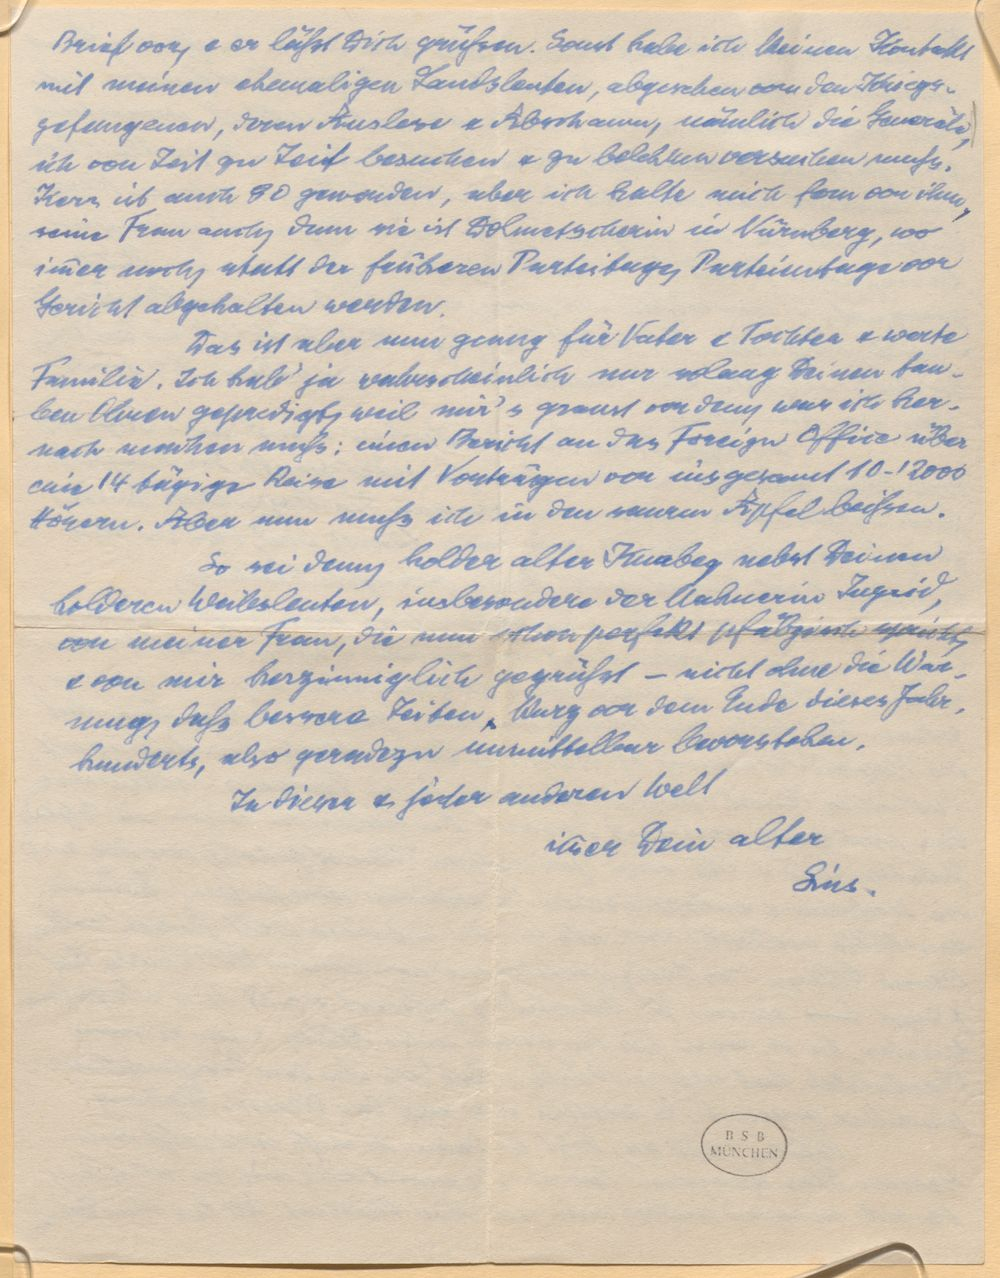 Brief vor, & er läßt Dich grüßen. Sonst habe ich keinen Kontakt
mit meinen ehemaligen Landsleuten, abgesehen von den Kriegs-
gefangenen, deren Auslese & Abschaum, nämlich die Generäle,
ich von Zeit zu Zeit besuchen & zu belehren versuchen muß.
Kerr ist auch 80 geworden, aber ich halte mich fern von ihm,
seine Frau auch, denn sie ist Dolmetscherin in Nürnberg, wo
im̄er noch, statt der früheren Parteitage, Parteientage vor
Gericht abgehalten werden.
Das ist aber nun genug für Vater & Tochter & werte
Familie. Ich hab' ja wahrscheinlich nur solang Deinen tau-
ben Ohren gepredigt, weil mir's graust vor dem, was ich her-
nach machen muß: einen Bericht an das Foreign Office über
eine 14 tägige Reise mit Vorträgen vor insgesamt 10-12000
Hörern. Aber nun muß ich in den sauren Apfel beißen.
So sei denn, holder alter Knabe, nebst Deinen
holderen Weibsleuten, insbesondere der Ingrid,
von meiner Frau, die nun schon perfekt pfälzisch spricht,
& von mir herzinniglich gegrüßt – nicht ohne die War-
nung, daß bessere Zeiten kurz vor dem Ende dieses Jahr-
hunderts, also geradezu unmittelbar bevorstehen.
In dieser & jeder anderen Welt
im̄er Dein alter
B S B
MÜNCHEN